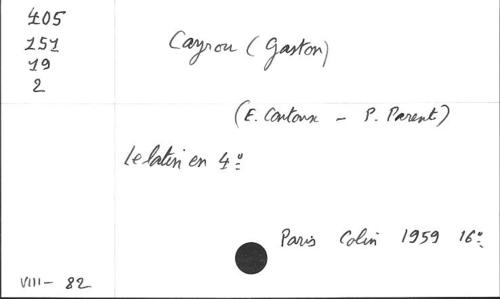 405
151
19
2
Cayrou (Gaston)
(E. Coutoux - P. Parent)
Le latin en 4º
Paris Colin 1959 16º
VIII - 82